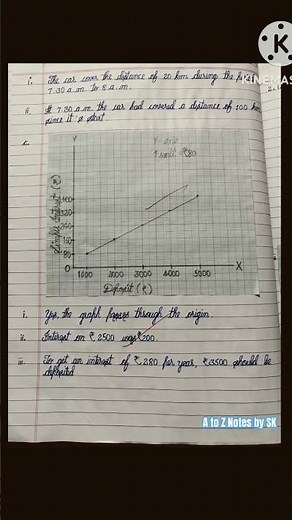 KINEMAS
i. The car cover the distance of 20 km during the
7.30 a.m. to 8 a.m.
ii. At 7.30 a.m the car had covered a distance of 100 km
since it's start
c.
Y
Y-axis
1 unit = ₹80
Simple Interest (₹)
400
320
240
160
80
0
1000 2000 3000 4000 5000 X
Deposit (₹)
i. Yes, the graph passes through the origin.
ii. Interest on ₹ 2500 is ₹ 200.
iii. To get an interest of ₹ 280 per year, ₹ 3500 should be
deposited
A to Z Notes by SK